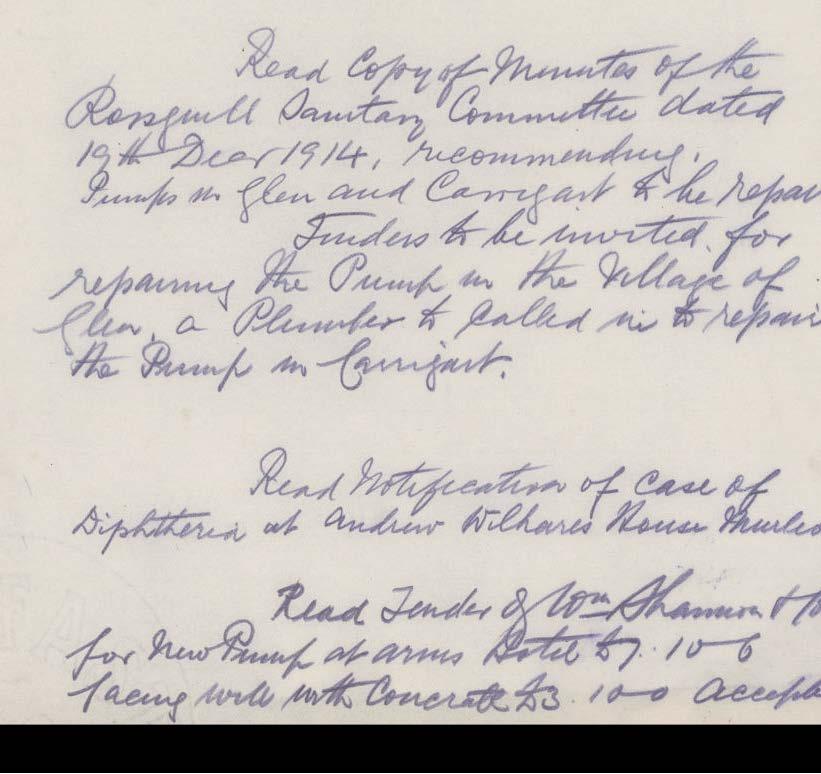 Read Copy of Minutes of the
Rossguill Sanitary Committee dated
19th Decr 1914, recommending,
Pumps in Glen and Carrigart to be repai
Tenders to be invited, for
repairing the Pump in the Village of
Glen, a Plumber to called in to repair
the Pump in Carrigart.
Read Notification of Case of
Diphtheria at Andrew Wilhares House
Read Tender of Wm Shannon &
for New Pump at arms Hotel £7. 10-6
facing well with Concrete £3. 10-0 accept